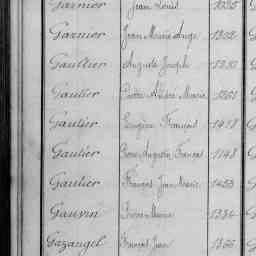 Garnier Jean Louis
Garnier Jean Marie Ange 1302
Gaultier Auguste Joseph
Gautier André Marie
Gautier Eugène François 1418
Gautier Pierre Auguste François 1148
Gautier François Jean Marie 1423
Gauvin Pierre Marie
Gazangel François Jean